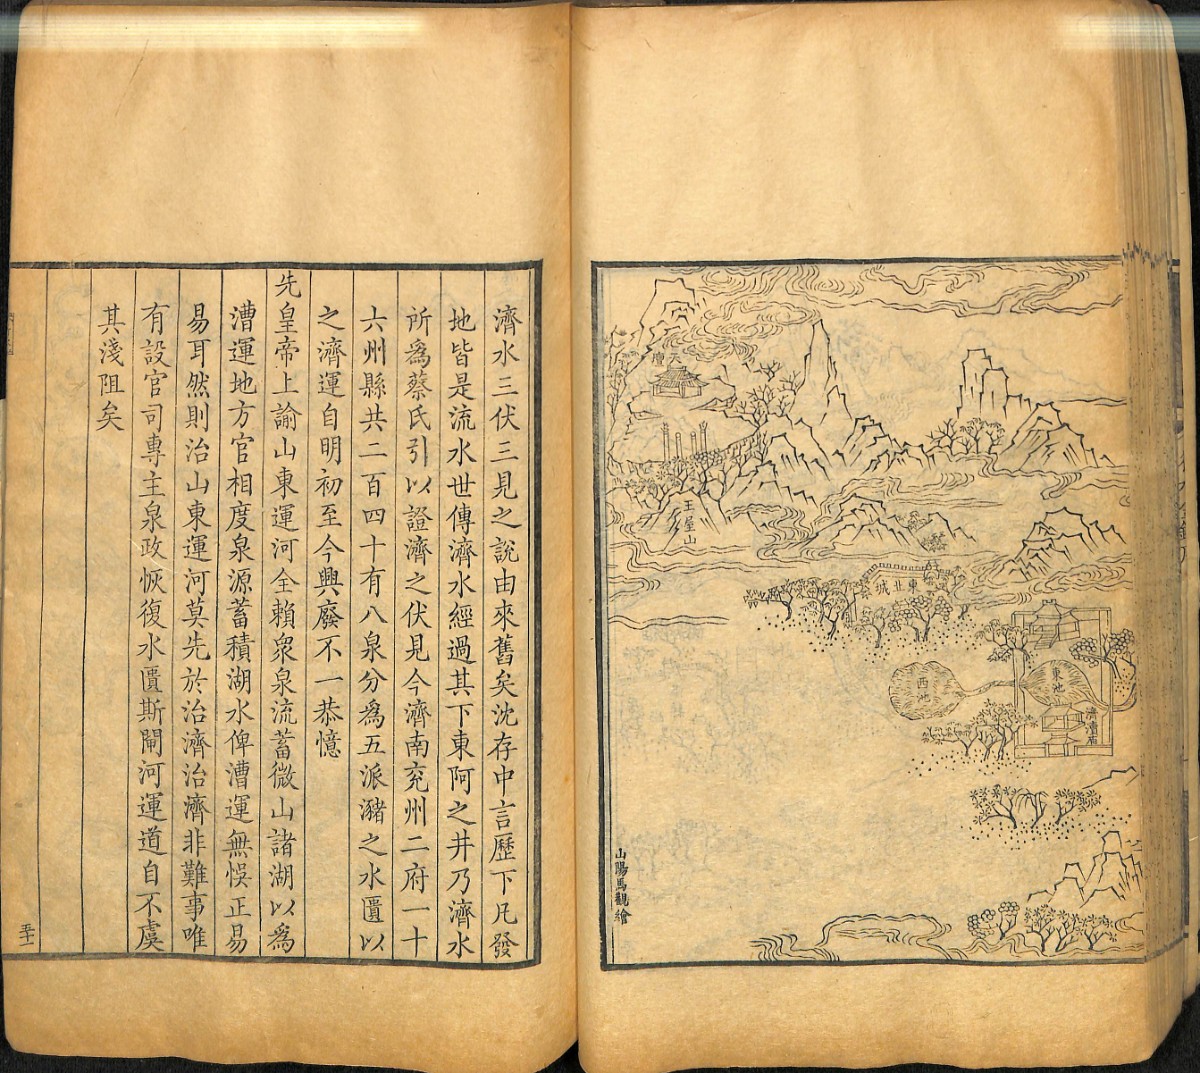 天壇
王屋山
東北城
東池
西池
濟瀆廟
山陽馬觀繪
濟水三伏三見之說由來舊矣沈存中言歷下凡發
地皆是流水世傳濟水經過其下東阿之井乃濟水
所爲蔡氏引以證濟之伏見今濟南兖州二府一十
六州縣共二百四十有八泉分爲五派瀦之水匱以
之濟運自明初至今興廢不一恭憶
先皇帝上諭山東運河全賴衆泉流蓄微山諸湖以爲
漕運地方官相度泉源蓄積湖水俾漕運無悞正易
易耳然則治山東運河莫先於治濟治濟非難事唯
有設官司專主泉政恢復水匱斯閘河運道自不虞
其淺阻矣